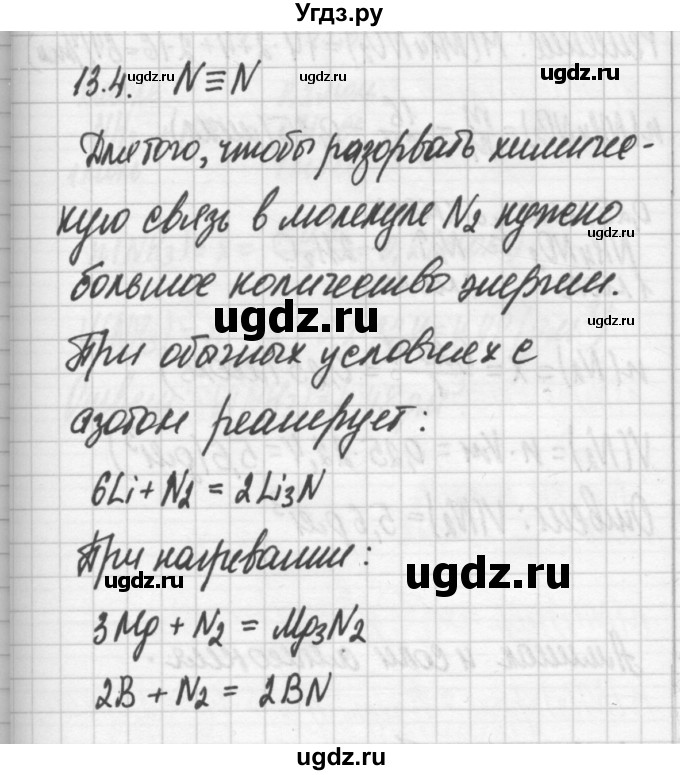 Угдз.ру
13.4. N≡N
Для того, чтобы разорвать химиче-
кую связь в молекуле N2 нужно
большое количество энергии.
При обычных условиях с
азотом реагирует:
6Li + N2 = 2Li3N
При нагревании:
3Mg + N2 = Mg3N2
2B + N2 = 2BN
ugdz.ru
ugdz.ru
ugdz.ru
ugdz.ru
ugdz.ru
ugdz.ru
ugdz.ru
ugdz.ru
ugdz.ru
ugdz.ru